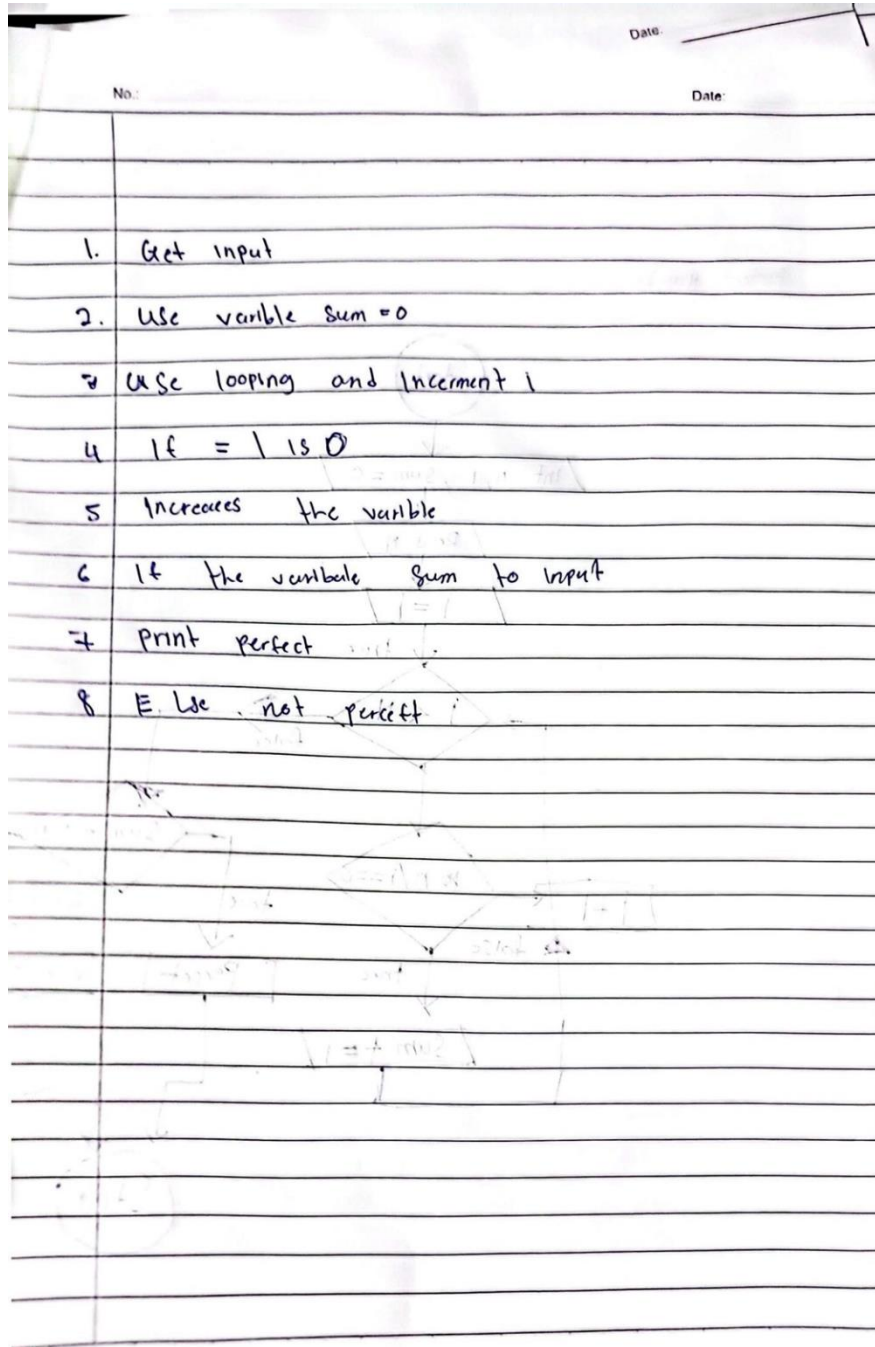 Date:
No.: Date:
1. Get input
2. Use varible Sum = 0
3 use looping and Incerment i
4 If = 1 is 0
5 Increaces the varible
6 If the varibale sum to input
7 print perfect
8 E lse not perceft